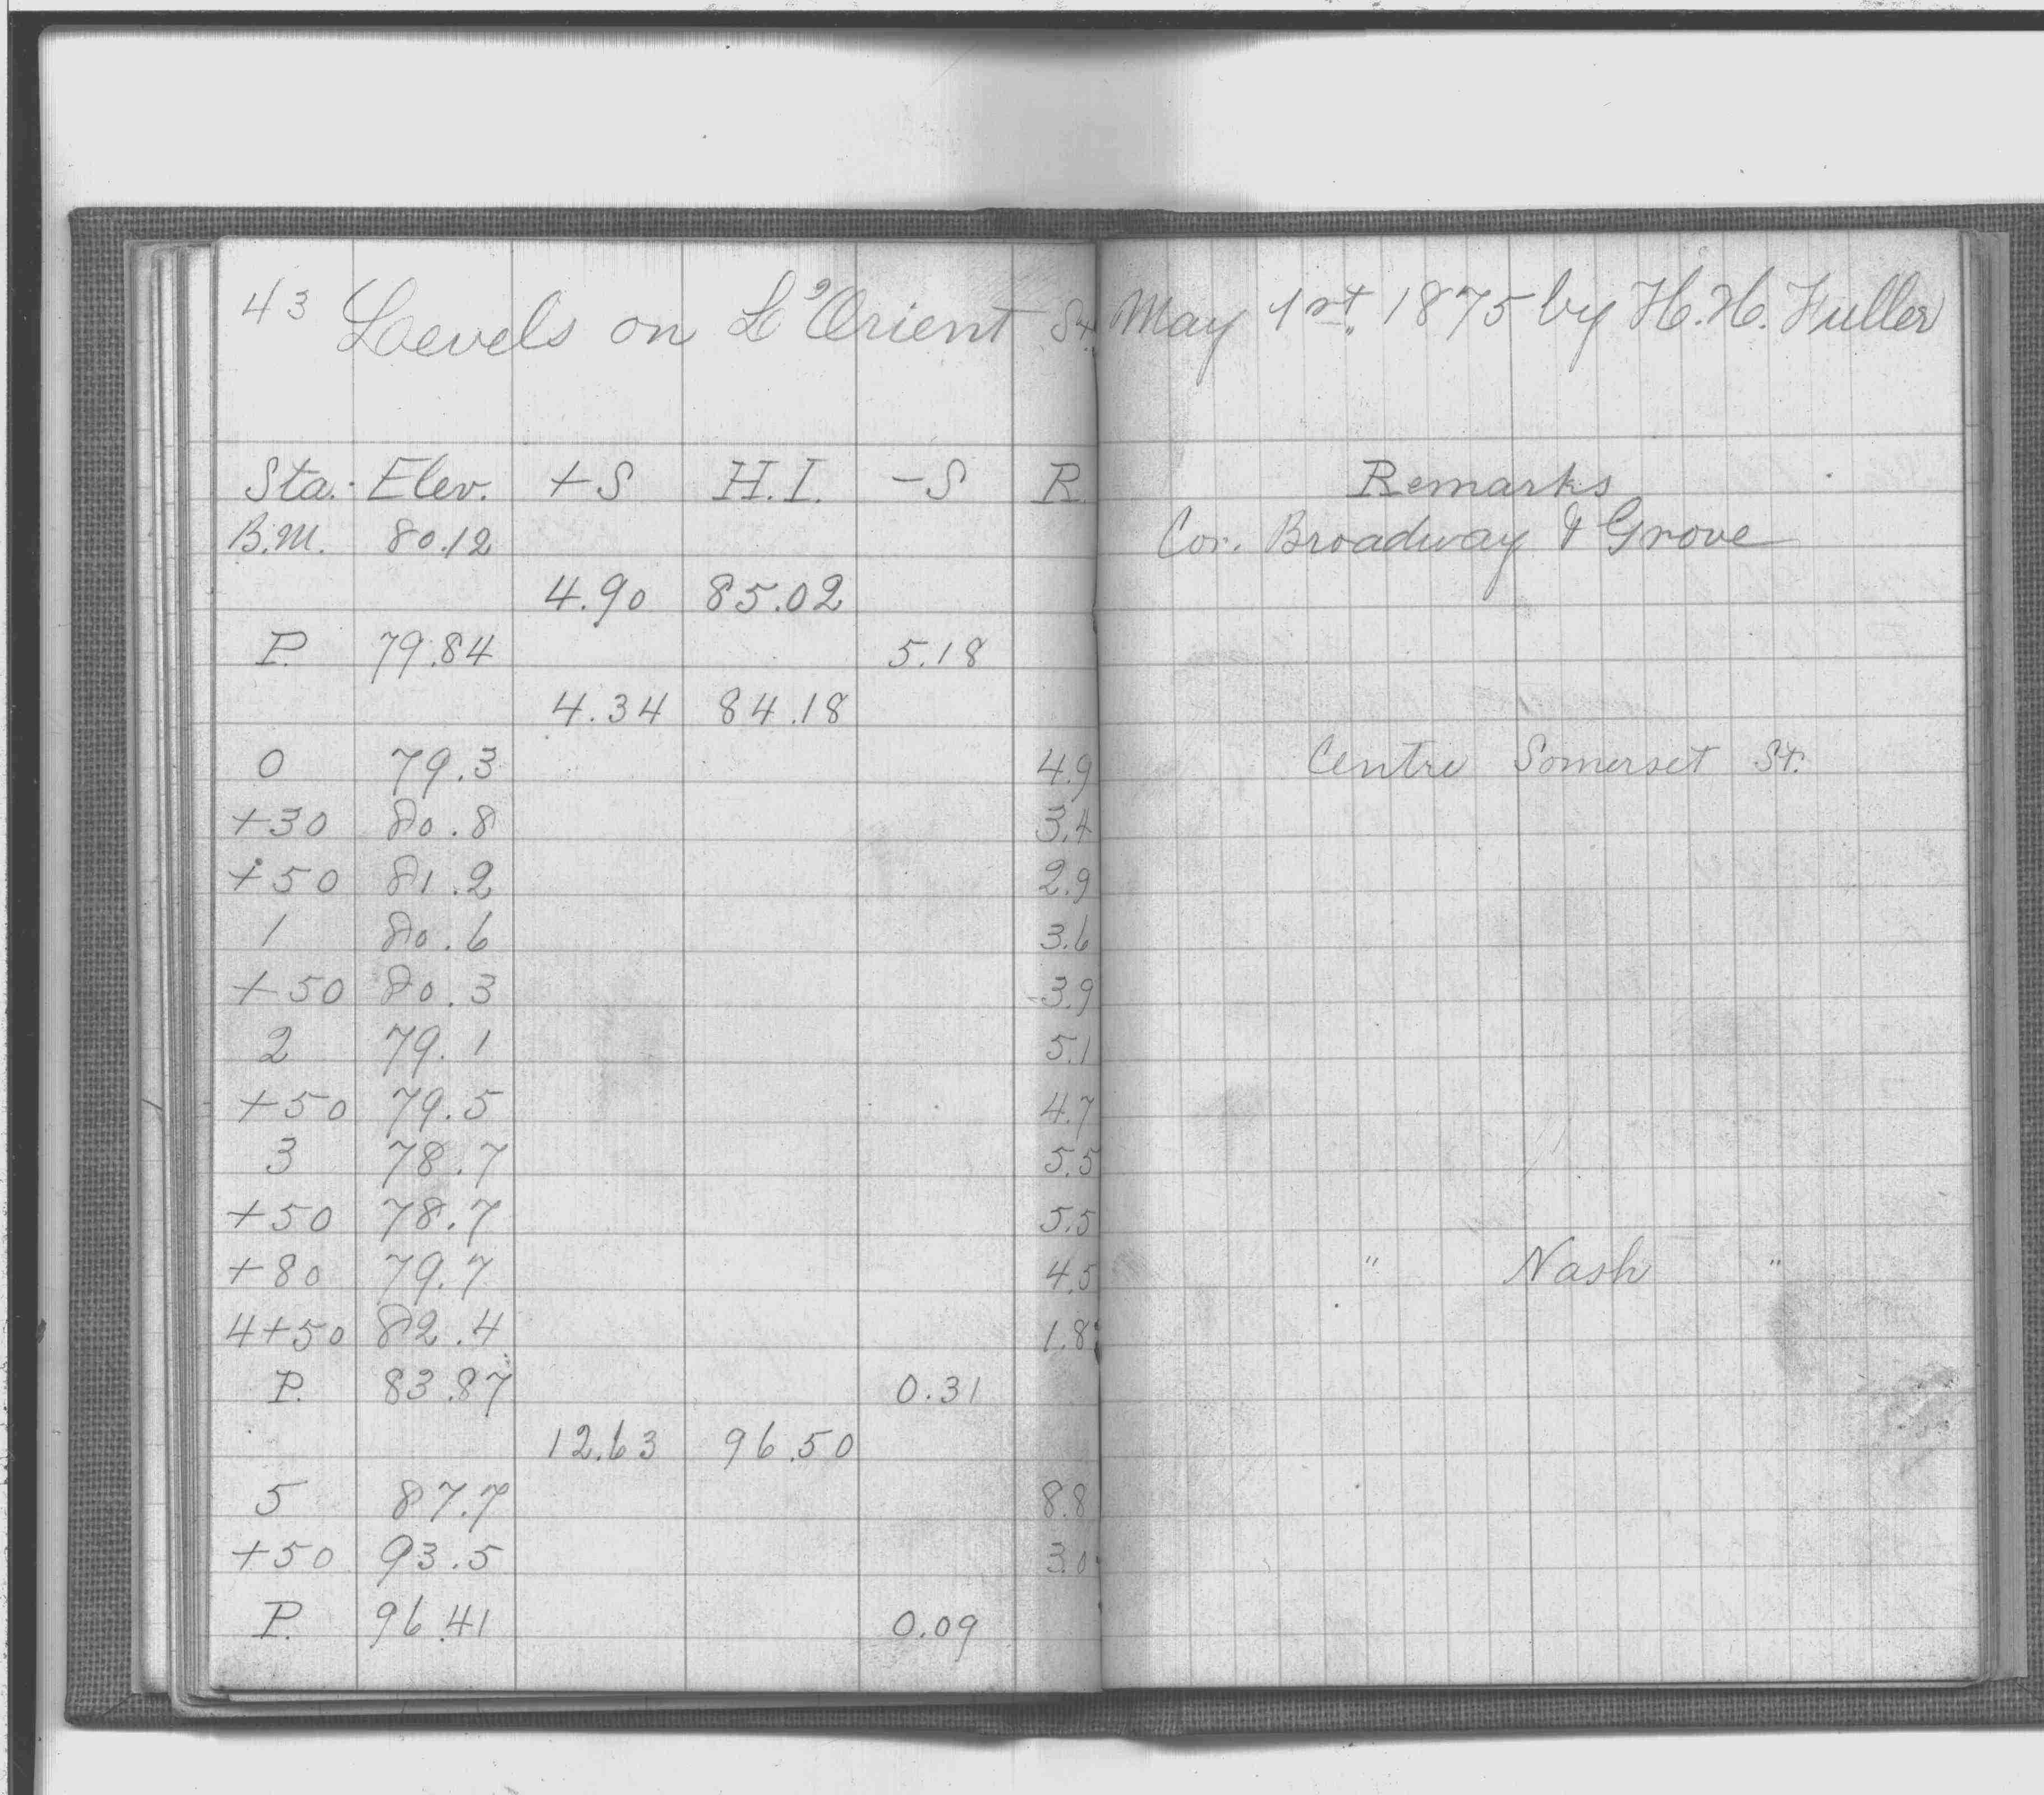 43 Levels on L'Orient St. May 1st. 1875 by H. H. Fuller
Sta. Elev. +S H.I. -S R. Remarks
B.M. 80.12 Cor. Broadway & Grove
4.90 85.02
P. 79.84 5.18
4.34 84.18
0 79.3 4.9 Centre Somerset St.
+30 80.8 3.4
+50 81.2 2.9
1 80.6 3.6
+50 80.3 3.9
2 79.1 5.1
+50 79.5 4.7
3 78.7 5.5
+50 78.7 5.5
+80 79.7 4.5 " Nash "
4+50 82.4 1.8
P. 83.87 0.31
12.63 96.50
5 87.7 8.8
+50 93.5 3.0
P. 96.41 0.09